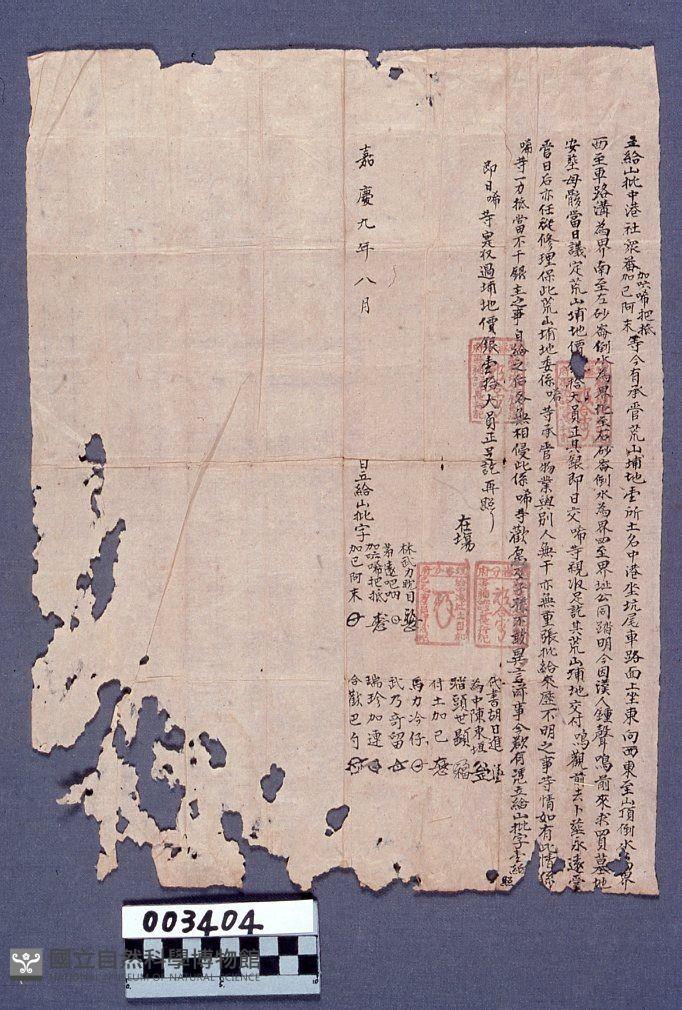 立給山批中港社眾番加吹唏把抵加己阿末等今有承管荒山埔地壹所土名中港坐坑尾車路面上坐東向西東至山頂倒水為界
西至車路溝為界南至左砂崙倒水為界北至右砂崙倒水為界四至界址公同踏明今因漢人鍾聲鳴前來求買墓地
安塟母骸當日議定荒山埔地價拾大員正其銀即日交唏等親收足訖其荒山埔地交付鳴觀前去卜塟永遠
管日后亦任從修理保此荒山埔地委係唏等承管物業與別人無干亦無重張批給來歷不明之事等情如有此情係
唏等一力抵當不干銀主之事自給之后各無相侵此係唏等歡愿及子孫不敢異言滋事今欲有憑立給山批字壹紙照
即日唏等實收過埔地價銀壹拾大員正足訖再照
在場
林武力
加吹唏把抵
日立給山批字
加己阿末
嘉慶九年八月
代書胡日進
為中陳東
踏頭世顯
什土加己
馬力冷仔
武乃奇留
瑞珍加連
合歡巴勻
003404
國立自然科學博物館
NATIONAL MUSEUM OF NATURAL SCIENCE